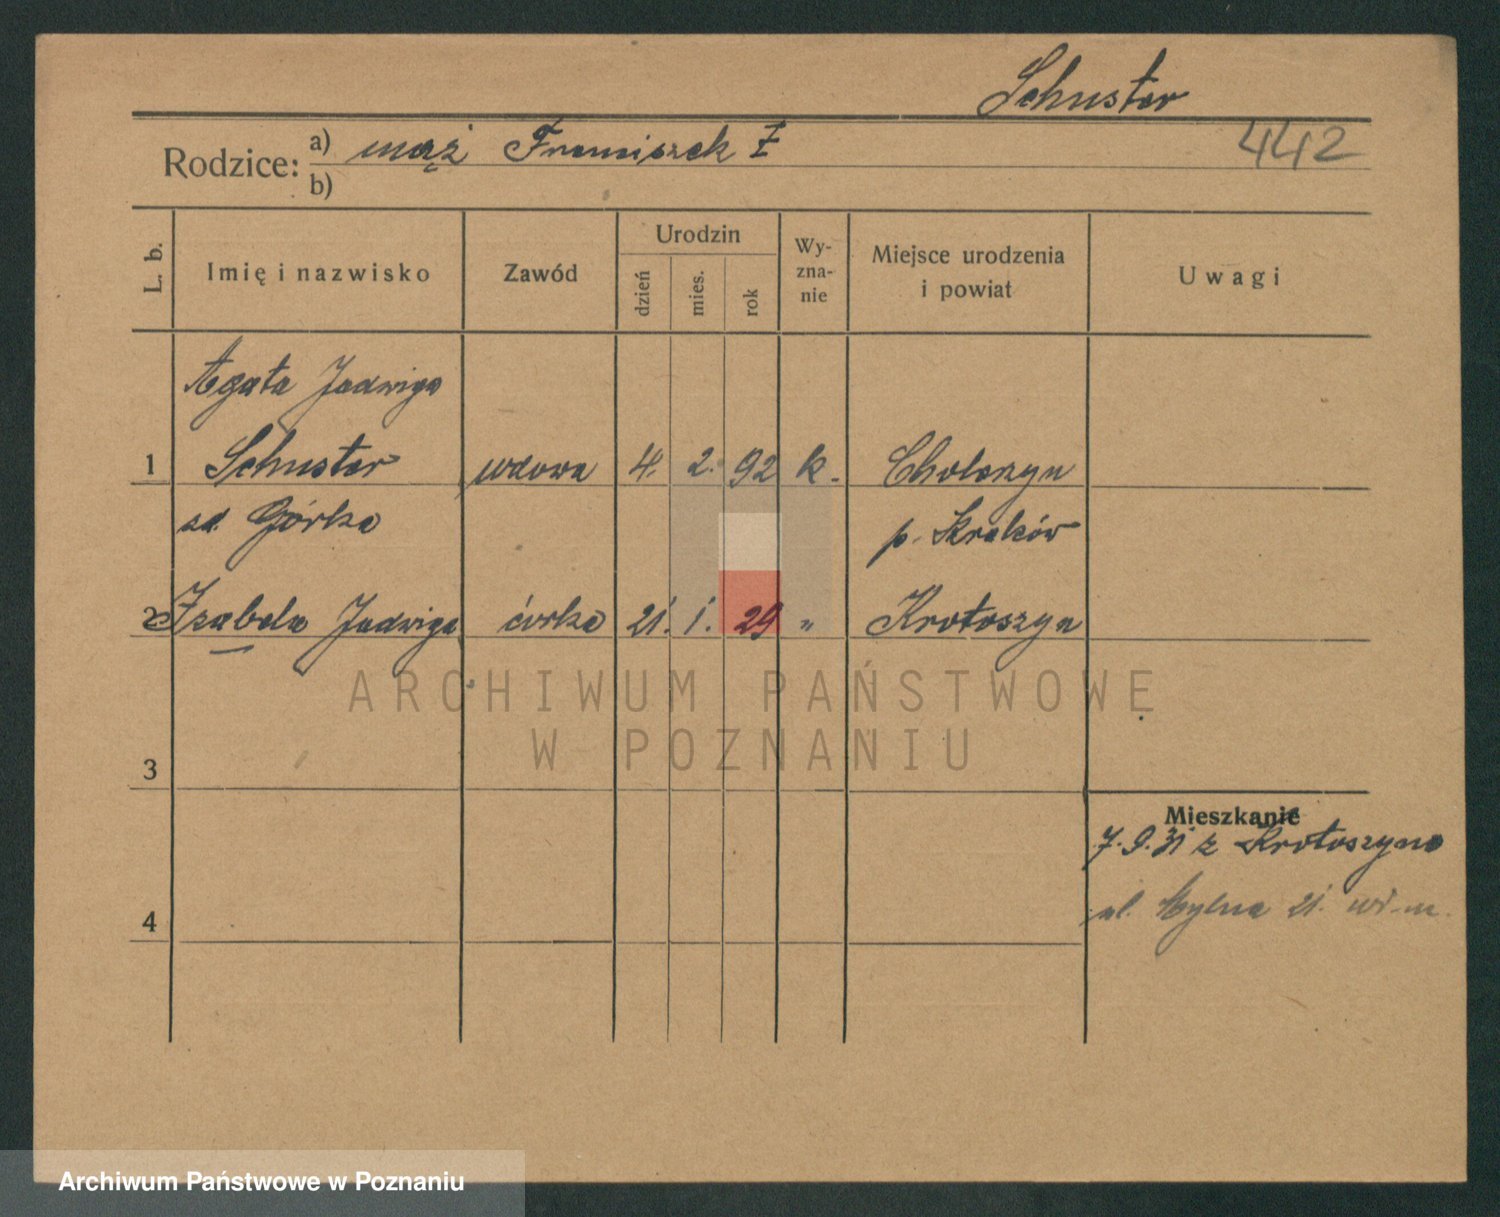 Schuster
442
Rodzice: a) mąż Franciszek Ż
b)
L. b. Imię i nazwisko Zawód Urodzin dzień mies. rok Wy-zna-nie Miejsce urodzenia i powiat Uwagi
Agata Jadwiga
1 Schuster wdowa 4. 2. 92 k. Cholerzyn
zd. Górka p. Kraków
2 Izabela Jadwiga córka 21. 1. 29 " Krotoszyn
ARCHIWUM PAŃSTWOWE
W POZNANIU
3
Mieszkanie
7.9.31 z Krotoszyna
4 ul. Mylna 21.
Archiwum Państwowe w Poznaniu